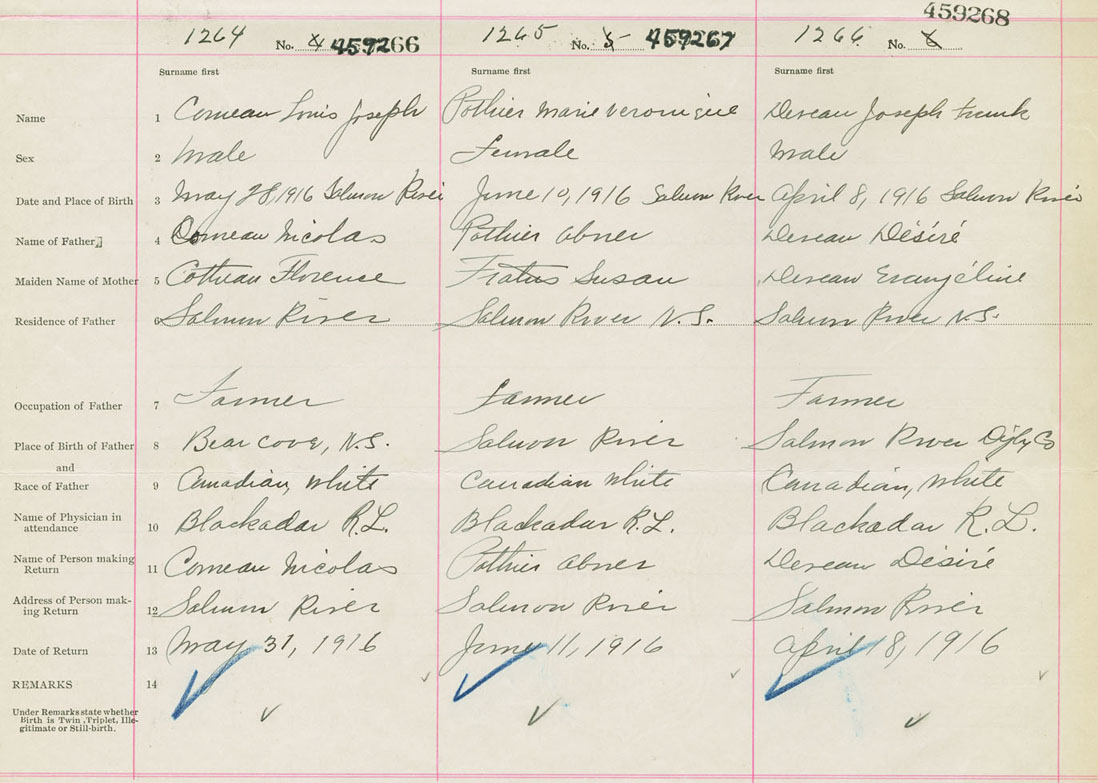 459268
1264 No. 4 459266 1265 No. 5 459267 1266 No. 6
Surname first Surname first Surname first
Name 1 Comeau Louis Joseph Pothier Marie Veronique Deveau Joseph Frank
Sex 2 Male Female Male
Date and Place of Birth 3 May 28, 1916 Salmon River June 10, 1916 Salmon River April 8, 1916 Salmon River
Name of Father 4 Comeau Nicolas Pothier Abner Deveau Désiré
Maiden Name of Mother 5 Florence Susan Deveau Evangéline
Residence of Father 6 Salmon River Salmon River N.S. Salmon River N.S.
Occupation of Father 7 Farmer Farmer Farmer
Place of Birth of Father 8 Bear Cove, N.S. Salmon River Salmon River Digby Co
and
Race of Father 9 Canadian, White Canadian White Canadian, White
Name of Physician in
attendance 10 Blackadar R.L. Blackadar R.L. Blackadar R.L.
Name of Person making
Return 11 Comeau Nicolas Pothier Abner Deveau Désiré
Address of Person mak-
ing Return 12 Salmon River Salmon River Salmon River
Date of Return 13 May 31, 1916 June 11, 1916 April 18, 1916
REMARKS 14
Under Remarks state whether
Birth is Twin, Triplet, Ille-
gitimate or Still-birth.